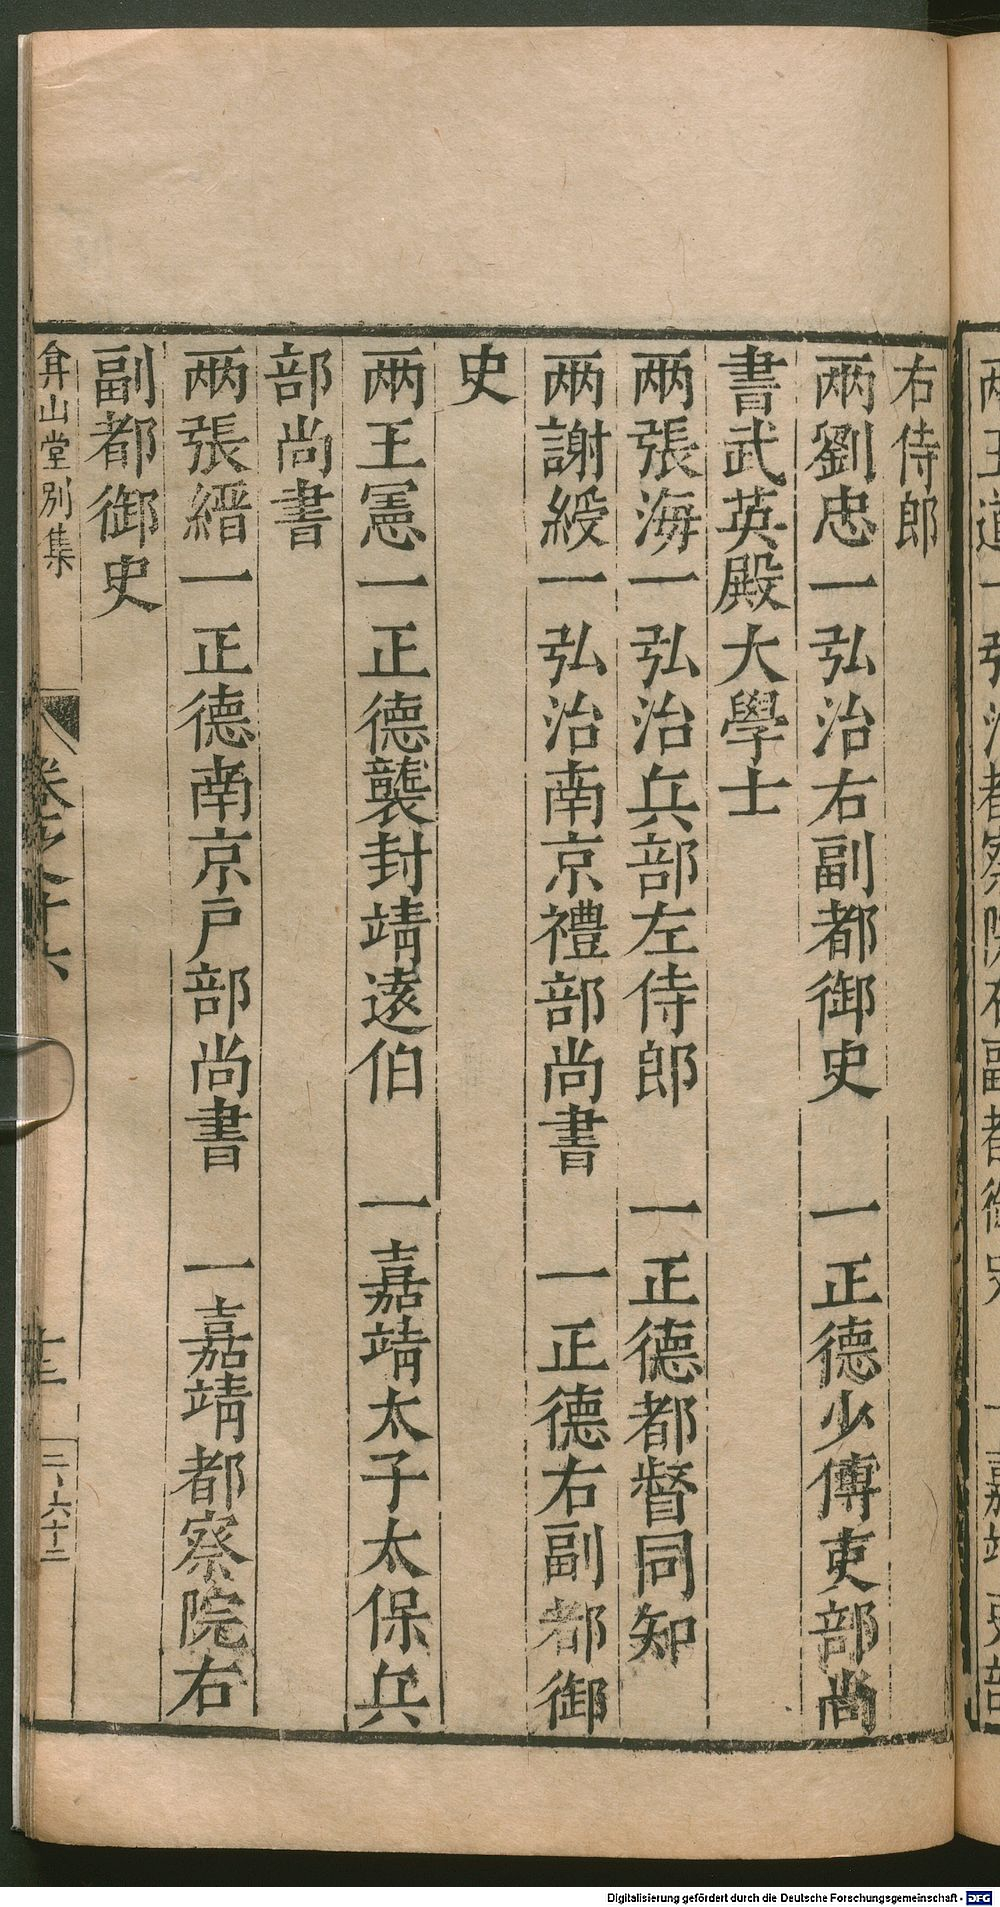 右侍郎
兩劉忠一弘治右副都御史　一正德少傅吏部尚
書武英殿大學士
兩張海一弘治兵部左侍郎　一正德都督同知
兩謝綬一弘治南京禮部尚書　一正德右副都御
史
兩王憲一正德襲封靖遠伯　一嘉靖太子太保兵
部尚書
兩張縉一正德南京戶部尚書　一嘉靖都察院右
副都御史
弇山堂別集
卷之十六
十三
二、六十二
Digitalisierung gefördert durch die Deutsche Forschungsgemeinschaft - DFG